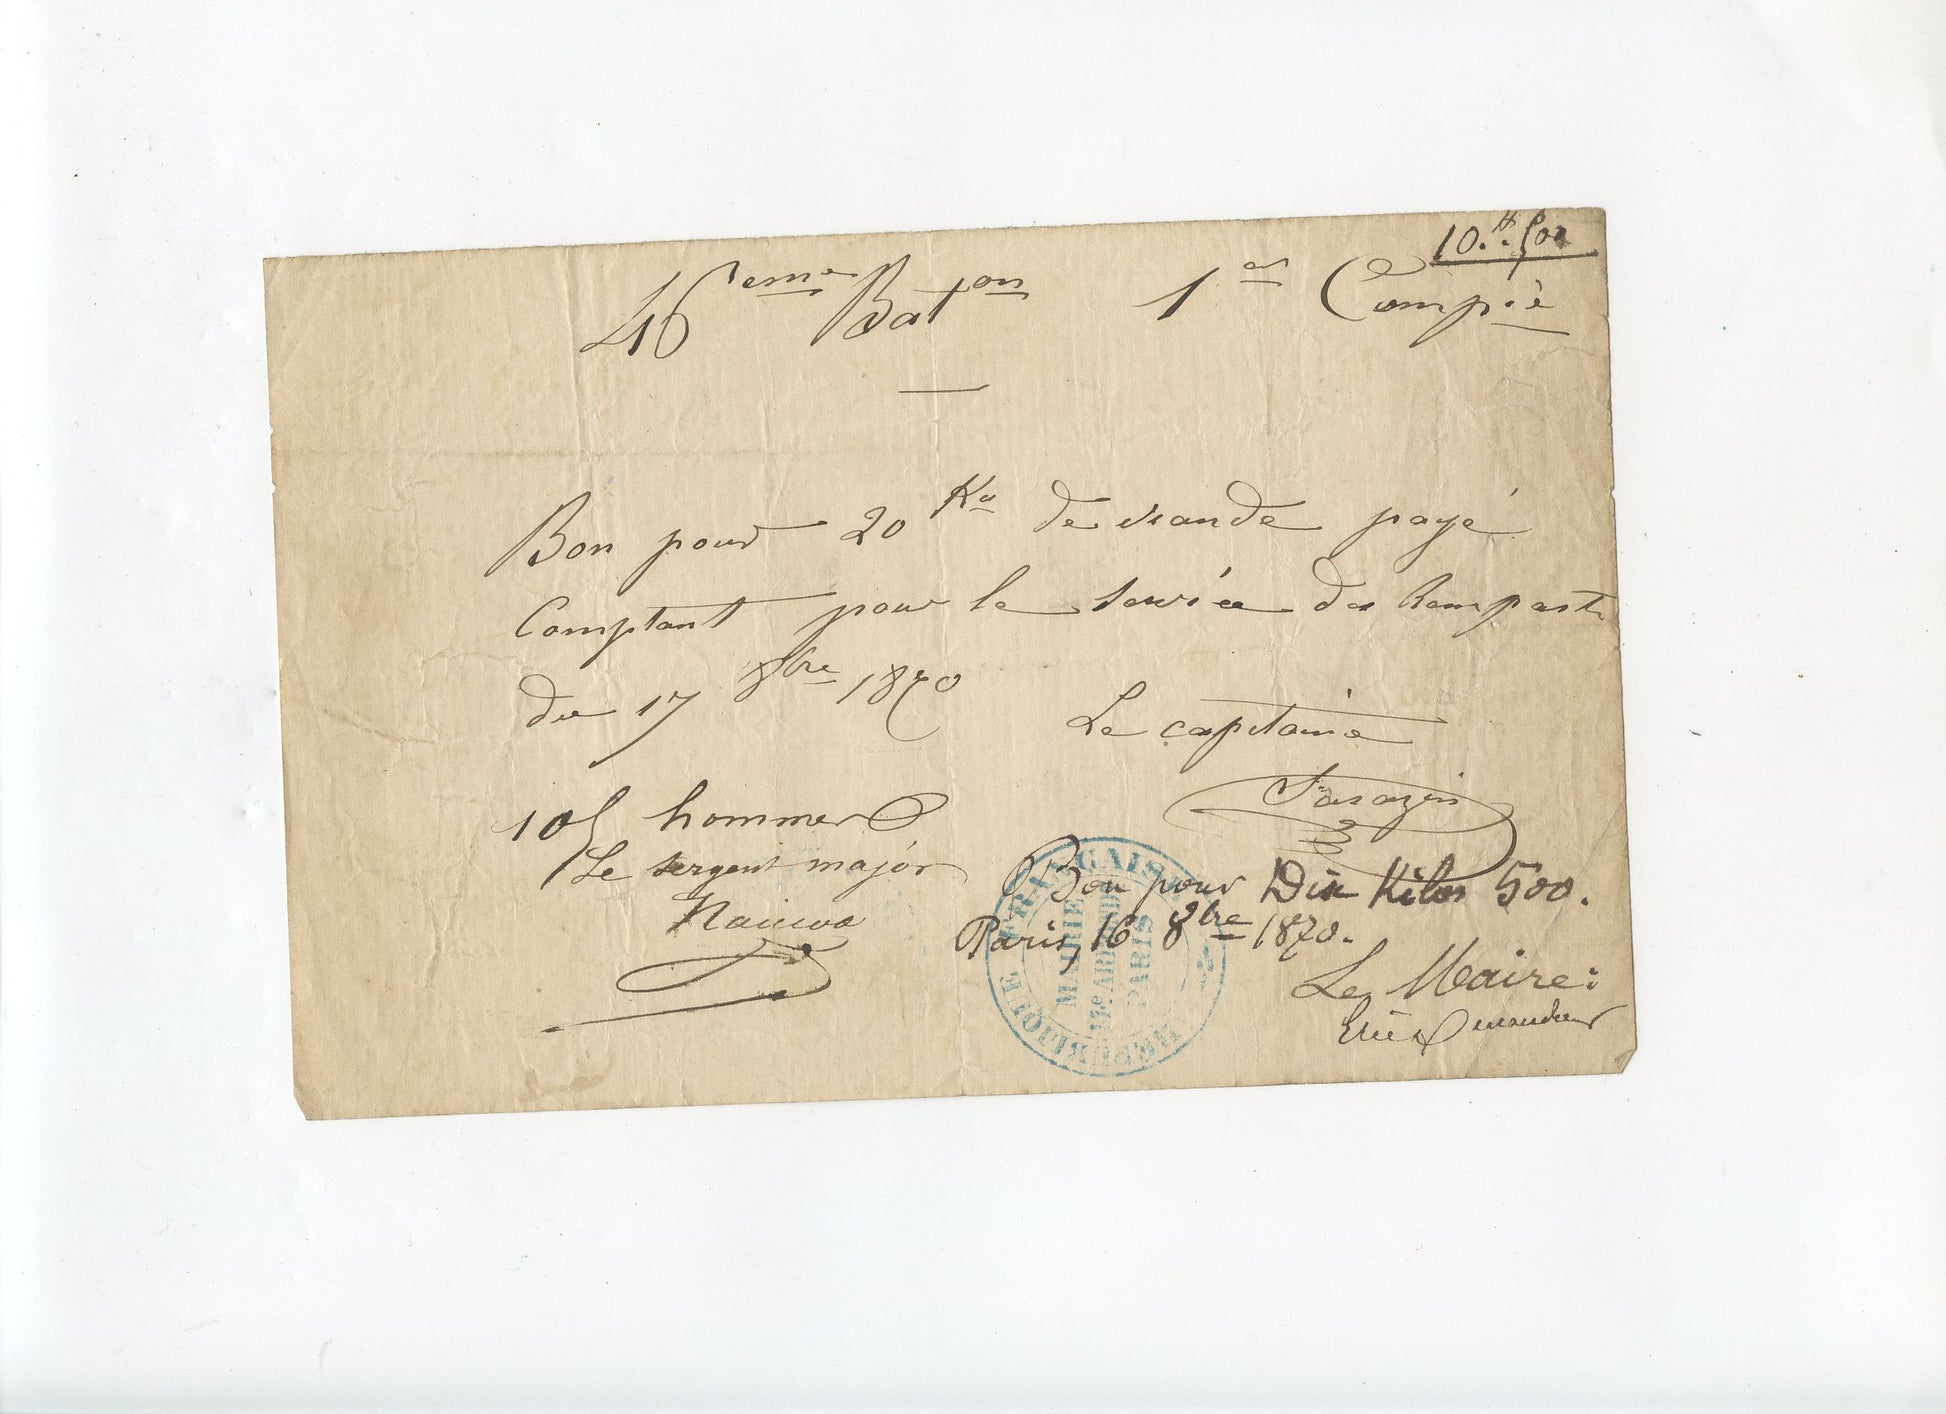 10.k. 500
46eme Baton 1er Compie
Bon pour 20 Ks de viande payé
Comptant pour le service des Remparts
du 17 8bre 1870
Le capitaine
Sarazin
105 hommes
Le sergent major
Bon pour Dix Kilos 500.
Paris, 16 8bre 1870.
Le Maire:
RÉPUBLIQUE FRANÇAISE
MAIRIE
PARIS